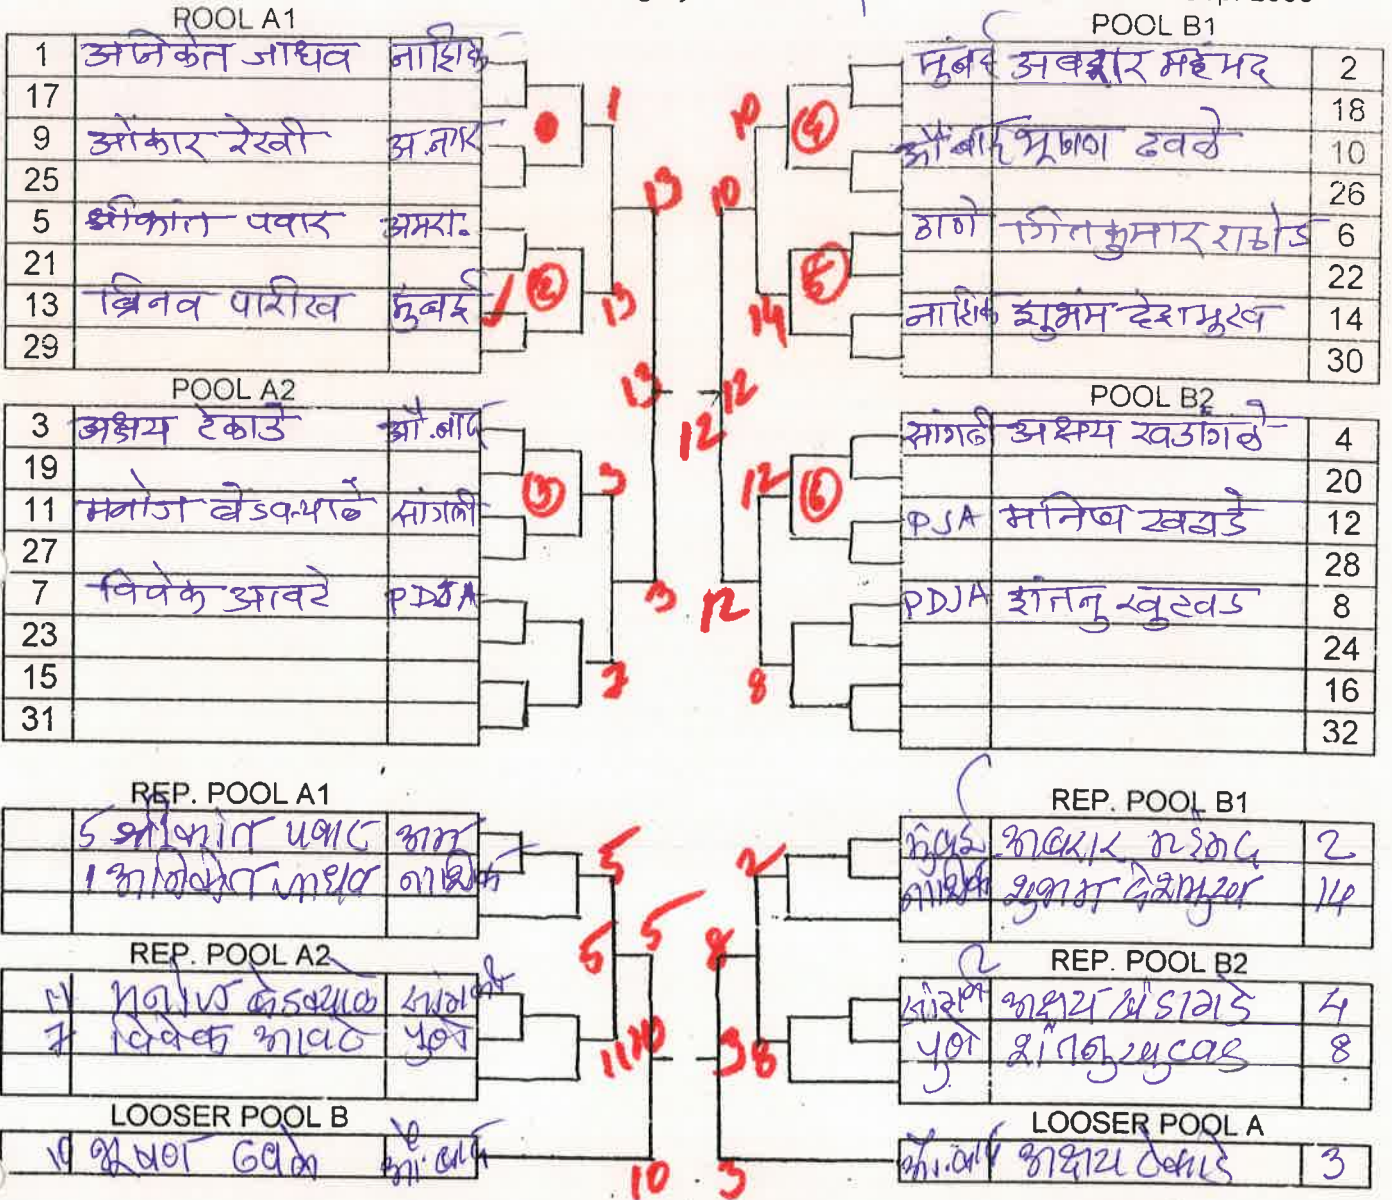 POOL A1
1 अनिकेत जाधव नाशिक
17
9 ओंकार रेखी अ.नगर
25
5 श्रीकांत पवार अमरा.
21
13 ब्रिनव पारीख मुंबई
29
1
13
13
13
POOL A2
3 अक्षय टेकाडे औ.बाद
19
11 मनोज सांगली
27
7 विवेक आवटे PDJA
23
15
31
3
3
3
7
POOL B1
मुंबई अबरार महंमद 2
18
औ.बाद भूषण ढवळे 10
26
ठाणे गितकुमार राठोड 6
22
नाशिक शुभम देशमुख 14
30
10
10
14
12
12
POOL B2
सांगली अक्षय खडांगळे 4
20
PJA मनिष खवडे 12
28
PDJA शंतनु खुटवड 8
24
16
32
12
6
12
8
REP. POOL A1
5 श्रीकांत पवार अम
1 अनिकेत जाधव नाशिक
5
5
5
REP. POOL A2
11 मनोज सांगली
7 विवेक आवटे पुणे
11
10
LOOSER POOL B
10 भूषण ढवळे औ.बाद
10
REP. POOL B1
मुंबई अबरार महंमद 2
नाशिक शुभम देशमुख 14
2
8
REP. POOL B2
सांगली अक्षय खंडागळे 4
पुणे शंतनु खुटवड 8
3
8
LOOSER POOL A
औ.बाद अक्षय टेकाडे 3
3